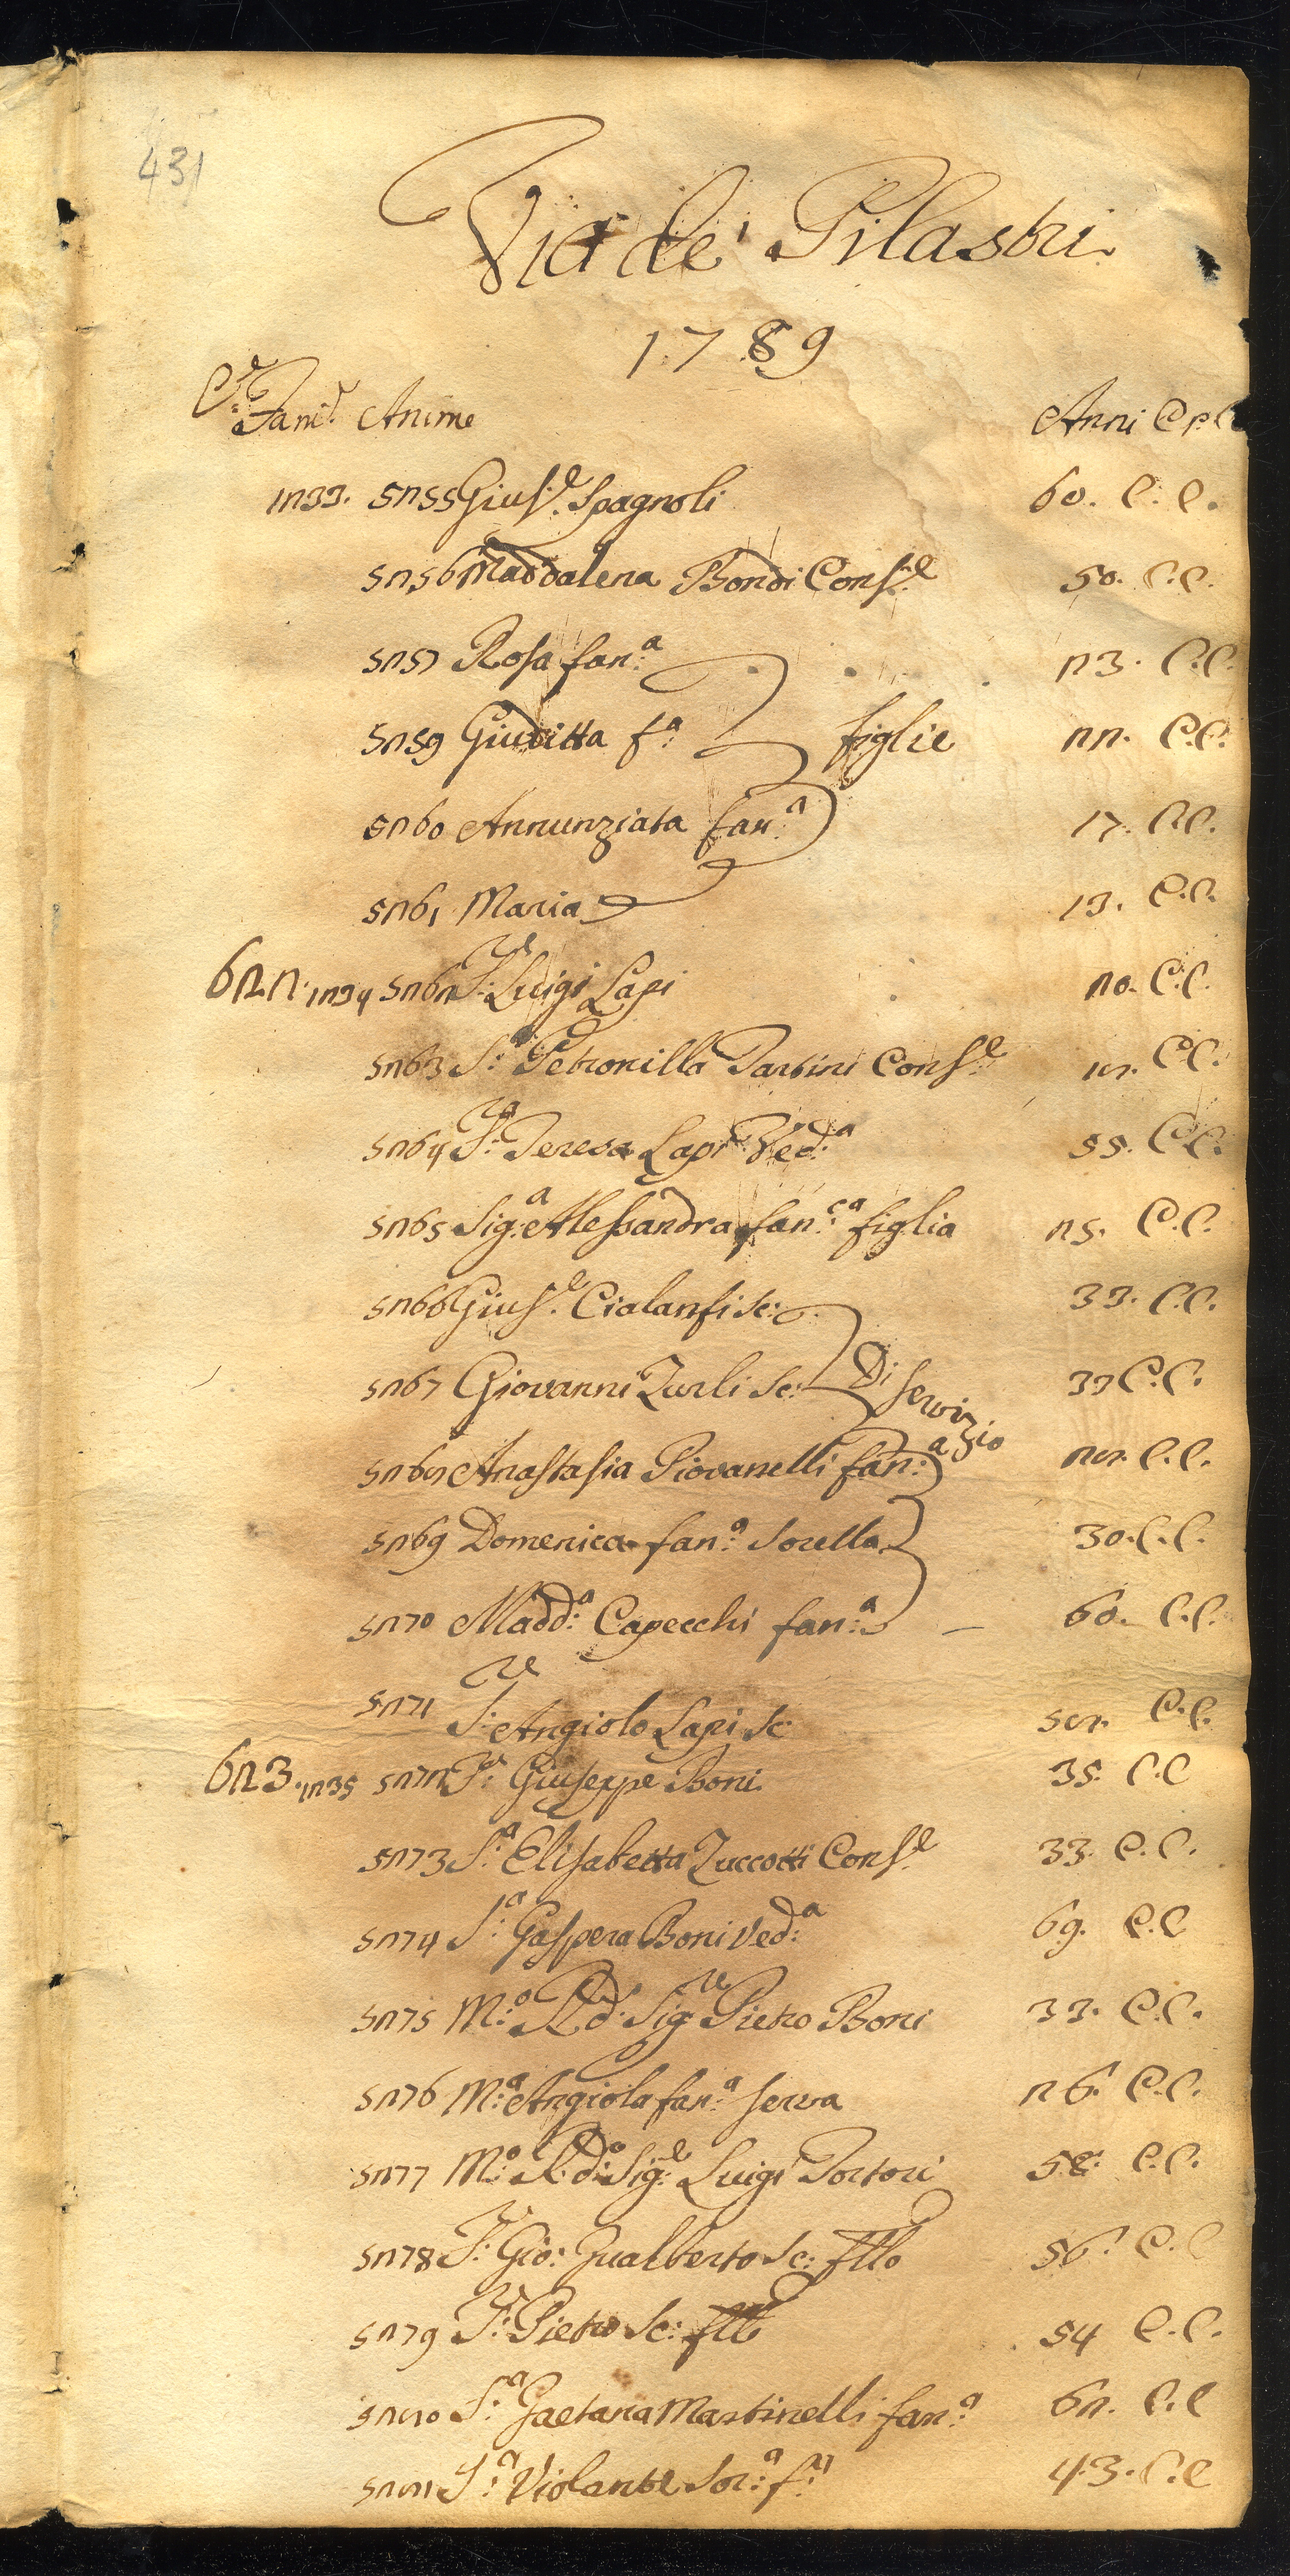 431
Via de' Pilastri
1789
C.e Fam.e Anime Anni Cr. C
1233. 5255 Gius.e Spagnoli 60. C. C.
5256 Maddalena Bondi Cons.e 50. C.C.
5257 Rosa fan.a 23. C.C.
5259 Giuditta f.a figlie 22. C.C.
5260 Annunziata fan.a 17. C.C.
5261 Maria 13. C.C.
622. 1234 5262 S.e Luigi Lapi 20. C.C.
5263 S.a Petronilla Partini Cons.e 18. C.C.
5264 S.a Teresa Lapi Ved.a 55. C.C.
5265 Sig.a Alessandra fan.ca figlia 25. C.C.
5266 Gius.e Cialanfi sc: 33. C.C.
5267 Giovanni Zurli sc: Di servizio 33 C.C.
5268 Anastasia Piovanelli fan.a 28. C.C.
5269 Domenica fan.a Sorella 30. C.C.
5270 Madd.a Capecchi fan.a 60. C.C.
5271 S.re Angiolo Lapi sc: 58. C.C.
623. 1235 5272 S.e Giuseppe Boni 35. C.C
5273 S.a Elisabetta Zuccotti Cons.e 33. C.C.
5274 S.a Gaspera Boni Ved.a 69. C.C
5275 M.o R.do Sig.re Pietro Boni 33. C.C.
5276 M.a Angiola fan.a serva 26. C.C.
5277 M.o R.do Sig.e Luigi Tortori 58. C.C.
5278 S.e Gio: Gualberto sc: fllo 56. C.C
5279 S.e Pietro sc: fllo 54 C.C.
5280 S.a Gaetana Martinelli fan.a 62. C.C
5281 S.a Violante Sor.a f.a 43. C.C